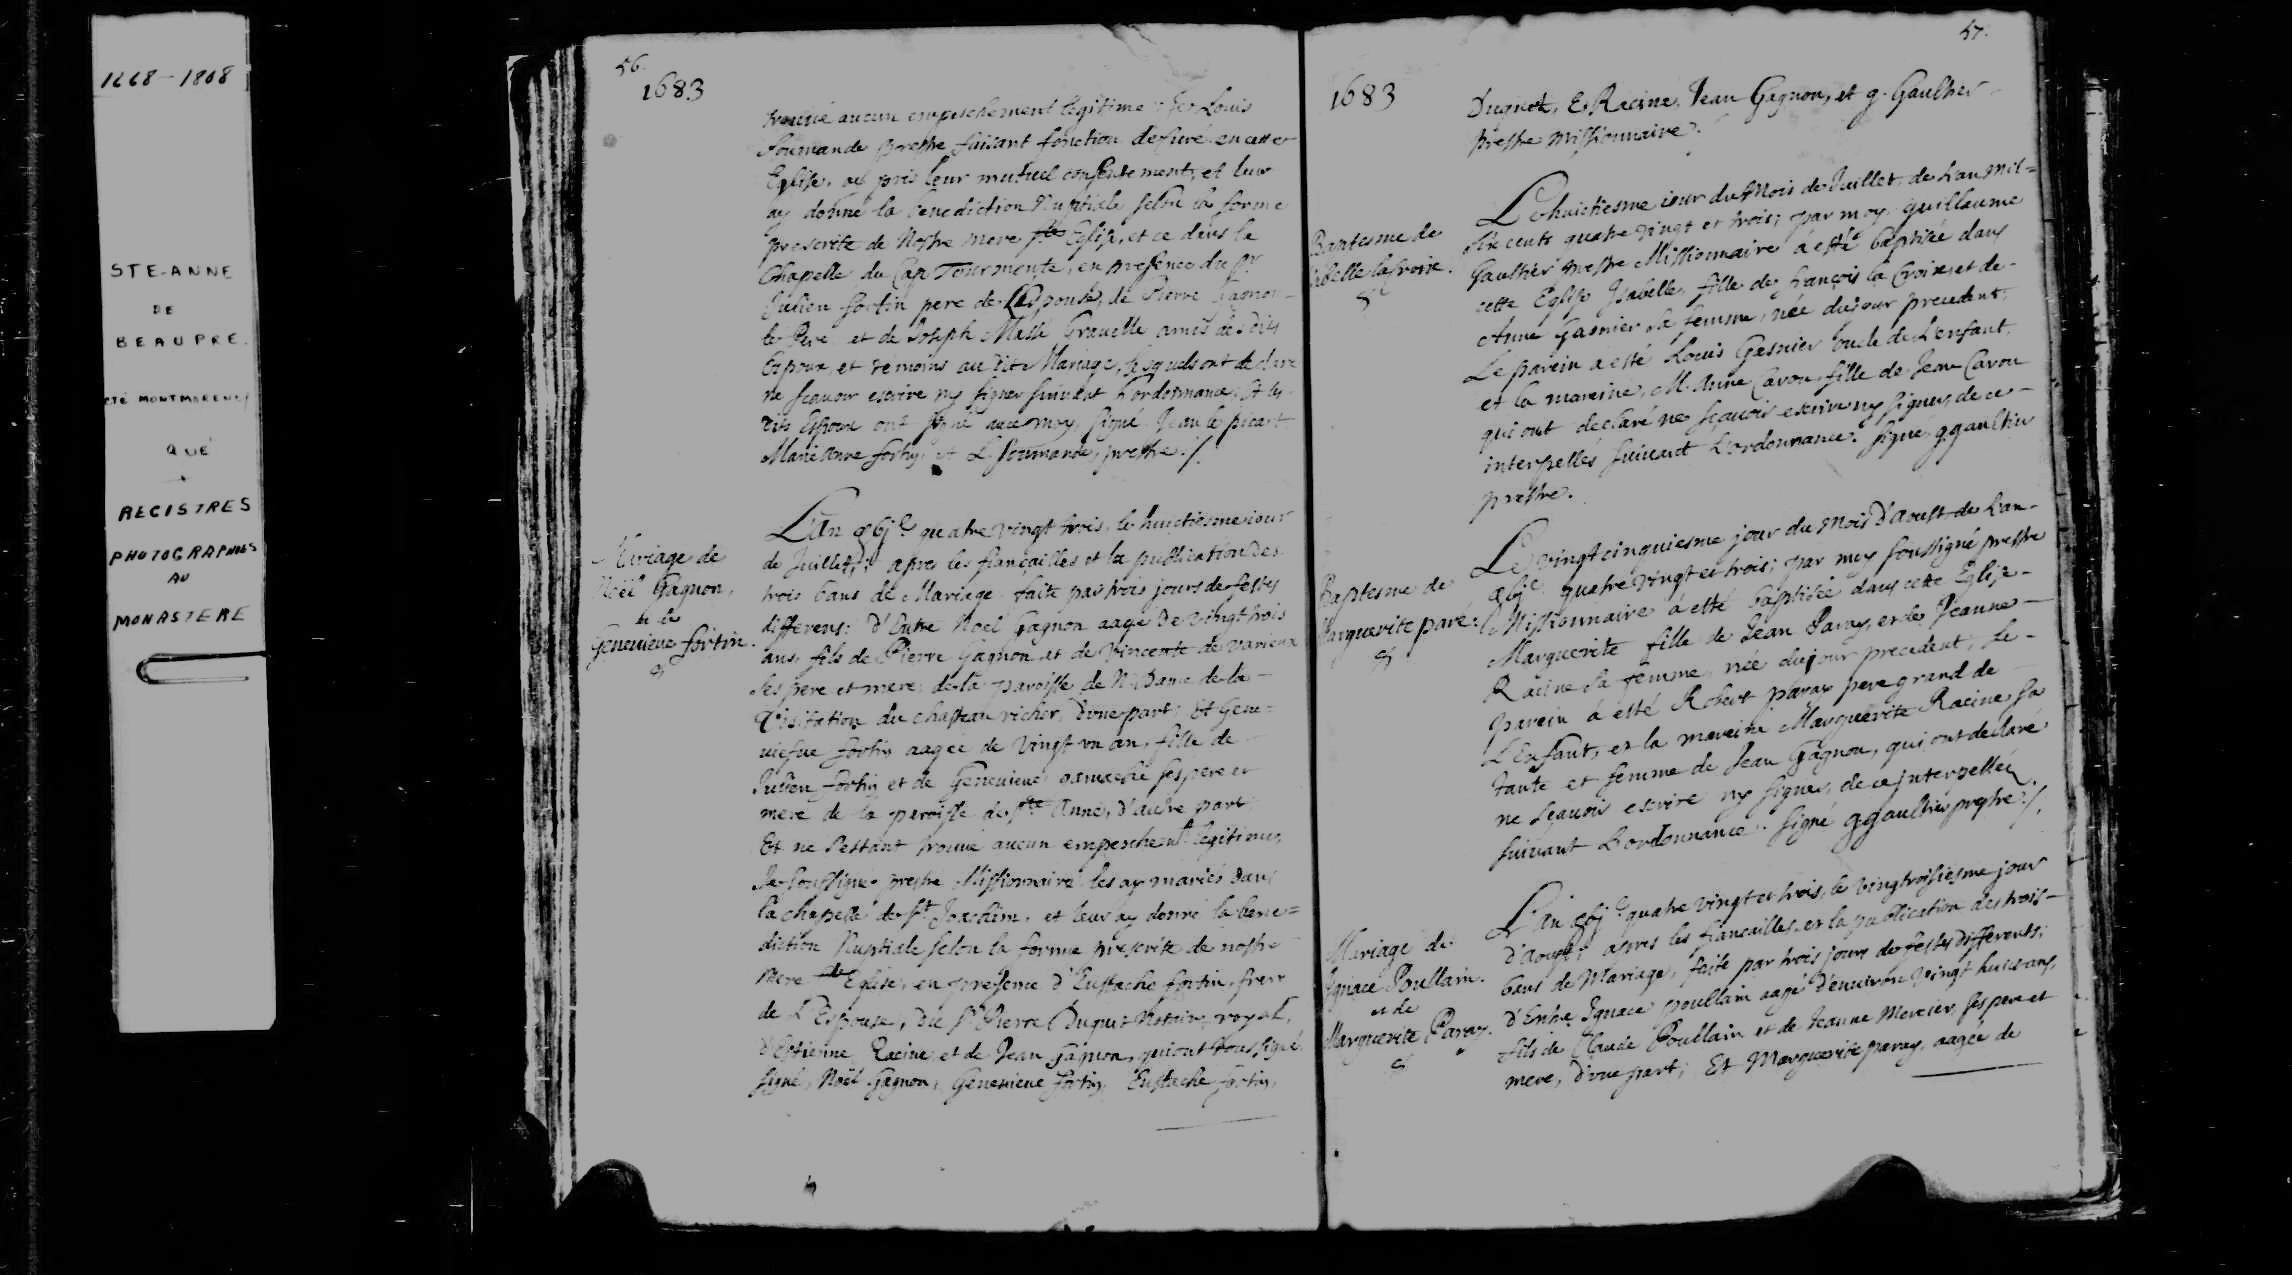 1668-1808
STE-ANNE
DE
BEAUPRE.
CTÉ MONTMORENCY
QUÉ
REGISTRES
PHOTOGRAPHIÉS
AU
MONASTERE
56.
1683
trouué aucun empeschement legitime Je Louis
Soumande prestre faisant fonction de Curé en cette
Eglise, ay pris leur mutuel consentement, et leur
ay donné la benediction Nuptiale selon la forme
prescrite de Nostre mere ste Eglise, et ce dans la
Chapelle du Cap Tourmente, en presence du sr
Julien fortin pere de L'Espouse, de Pierre Gagnon
le Pere et de Joseph Massé Grauelle amis des dits
Espoux, et temoins au dit Mariage, lesquels ont declaré
ne sçauoir escrire ny signer suiuant L'ordonnance, Et les
dits Espoux ont signé auec moy, signé Jean le picart
Marie Anne fortin et L. Soumande, prestre./.
Mariage de
Noël Gagnon,
et de
Geneuieue fortin.
L'an gbjc quatre vingt trois, le huictiesme iour
de Juillet; apres les fiançailles et la publication des
trois bans de Mariage faite par trois jours de festes
differens: d'Entre Noel Gagnon aagé de vingt trois
ans, fils de Pierre Gagnon et de Vincente de varieux
ses pere et mere de la paroisse de N. Dame de la
Visitation du chasteau richer, d'vne part; Et Gene=
uiefue fortin aagée de vingt vn an, fille de
Julien fortin et de Geneuieue gamache ses pere et
mere de la paroisse de ste Anne, d'autre part
Et ne s'estant trouué aucun empeschemt legitime,
Je soussigné prestre Missionnaire les ay mariés dans
la chapelle de st Joachim, et leur ay donné la bene=
diction Nuptiale selon la forme prescrite de nostre
Mere ste Eglise, en presence d'Eustache fortin, frere
de L'Espouse, du sr Pierre Duquet Notaire royal,
d'Estienne Racine et de Jean Gagnon, qui ont tous signé
signé, Noël Gagnon, Geneuieue fortin, Eustache fortin,
57.
1683
Duquet, E. Racine, Jean Gagnon, et g. Gaultier
prestre missionnaire.
Baptesme de
Isabelle lacroix.
Le huictiesme iour du Mois de Juillet de L'an mil=
six cents quatre vingt et trois; par moy guillaume
Gaultier prestre Missionnaire à esté baptisée dans
cette Eglise Isabelle, fille de françois la Croix, et de
Anne Gasnier sa femme, née du jour precedent,
Le parein a esté Louis Gasnier oncle de L'enfant,
et la mareine, M. Anne Cavon, fille de Jean Cavon
qui ont declaré ne sçauoir escrire ny signer, de ce
interpellés suiuant L'ordonnance. signé g. gaultier
prestre.
Baptesme de
Marguerite paré.
Le vingt cinquiesme jour du Mois d'Aoust de L'an
gbjc quatre vingt et trois; par moy soussigné prestre
Missionnaire à esté baptisée dans cette Eglise
Marguerite fille de Jean Paray, et de Jeanne
Racine sa femme née du jour precedent, Le
parein à esté Robert paray pere grand de
L'Enfant, et la mareine Marguerite Racine sa
tante et femme de Jean Gagnon, qui ont declaré
ne sçauoir escrire ny signer, de ce interpellés
suiuant L'ordonnance. signé g gaultier prestre./.
Mariage de
Ignace Poullain.
et de
Marguerite Paray.
L'an gbjc quatre vingt et trois, le vingtroisiesme jour
d'Aoust; apres les fiançailles et la publication des trois
bans de Mariage, faite par trois jours de festes differents;
d'Entre Ignace poullain aagé d'enuiron vingt huit ans,
fils de Claude Poullain et de Jeanne Mercier ses pere et
mere, d'vne part; Et Marguerite paray, aagée de